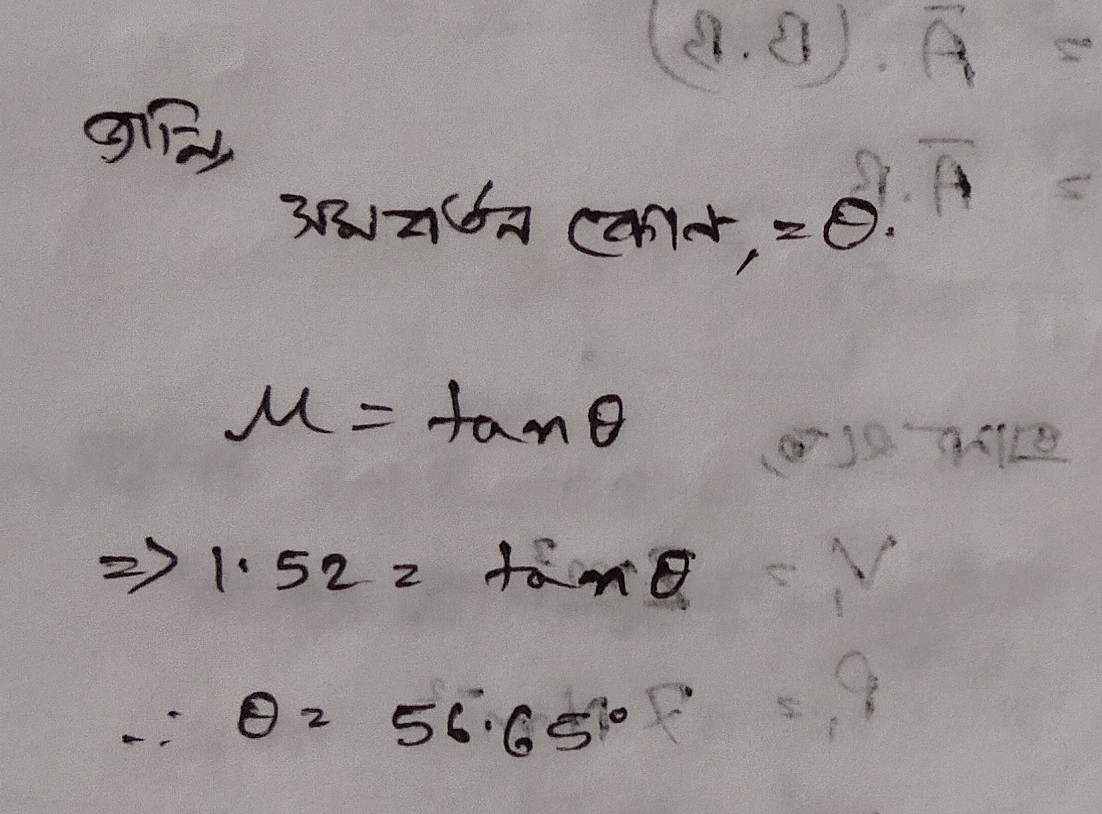 জানি,
সমবর্তন কোন, = θ.
μ = tanθ
=> 1.52 = tanθ
∴ θ = 56.65°